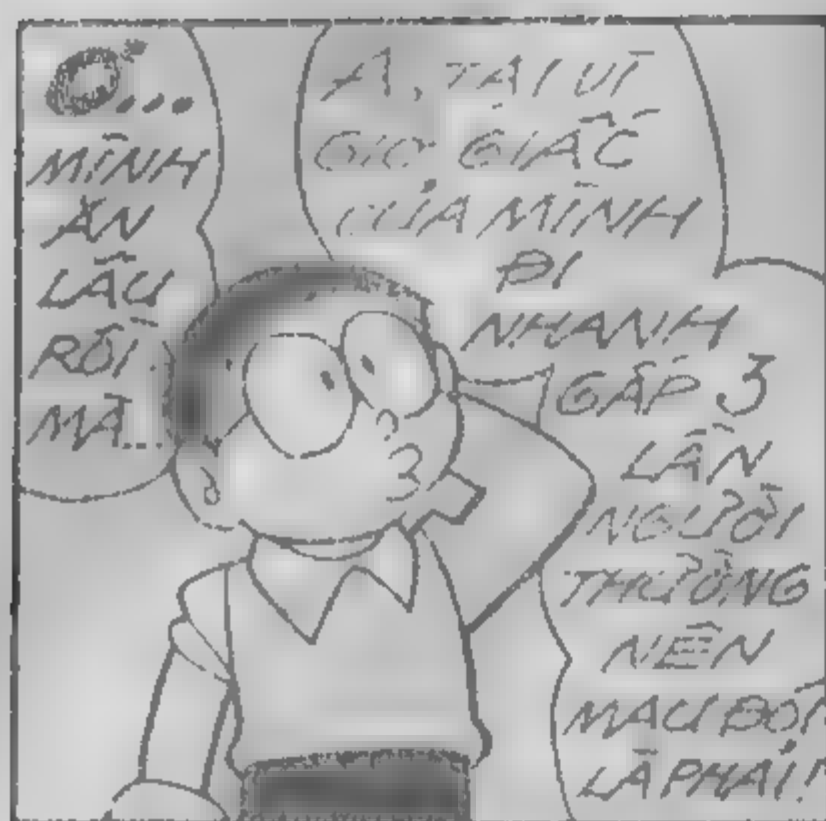 Ơ...
MÌNH
ĂN
LÂU
RỒI
MÀ...
A, TẠI VÌ
GIỜ GIẤC
CỦA MÌNH
ĐI
NHANH
GẤP 3
LẦN
NGƯỜI
THƯỜNG
NÊN
MAU ĐÓI
LÀ PHẢI!